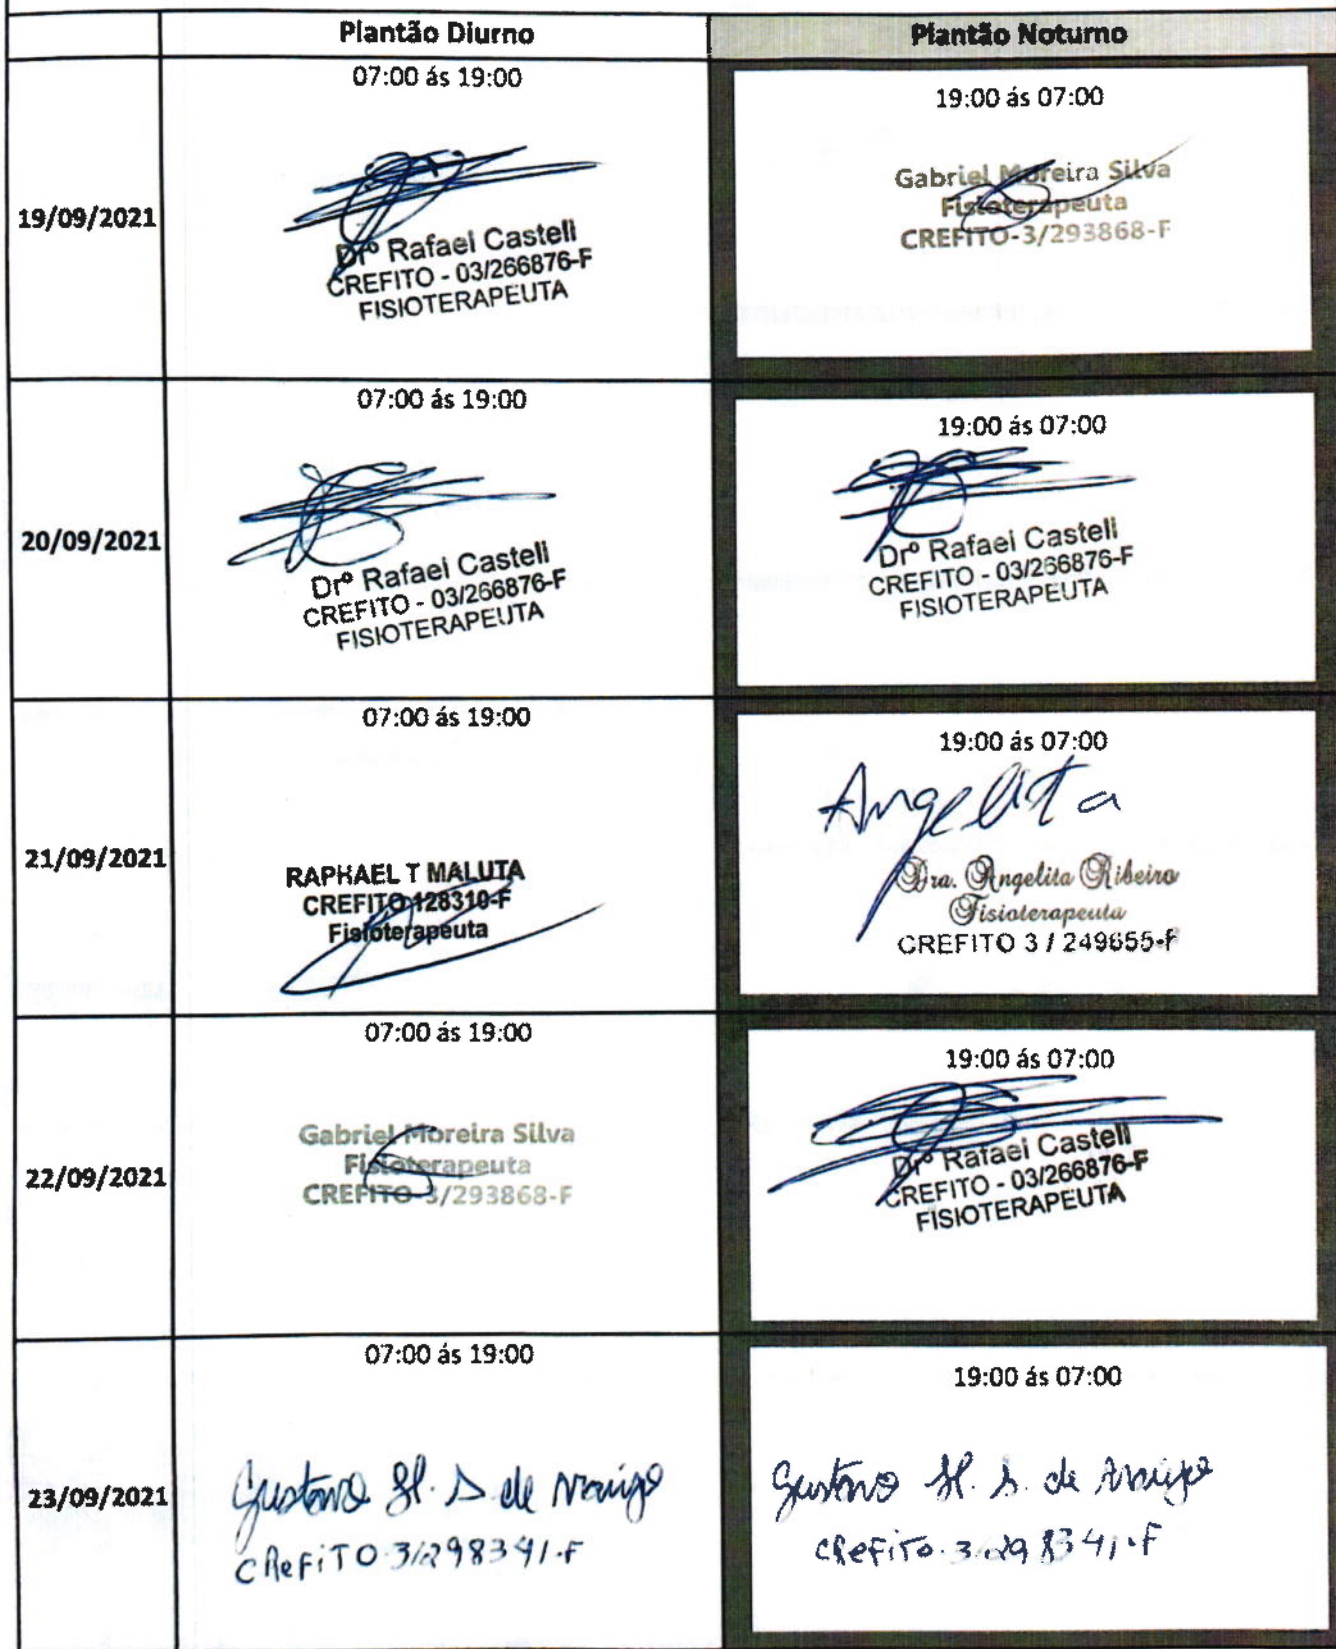 Plantão Diurno
Plantão Noturno
19/09/2021
07:00 ás 19:00
Drº Rafael Casteli
CREFITO - 03/266876-F
FISIOTERAPEUTA
19:00 ás 07:00
Gabriel Moreira Silva
Fisioterapeuta
CREFITO-3/293868-F
20/09/2021
07:00 ás 19:00
Drº Rafael Casteli
CREFITO - 03/266876-F
FISIOTERAPEUTA
19:00 ás 07:00
Drº Rafael Casteli
CREFITO - 03/266876-F
FISIOTERAPEUTA
21/09/2021
07:00 ás 19:00
RAPHAEL T MALUTA
CREFITO 128310-F
Fisioterapeuta
19:00 ás 07:00
Angelita
Dra. Angelita Ribeiro
Fisioterapeuta
CREFITO 3 / 249655-F
22/09/2021
07:00 ás 19:00
Gabriel Moreira Silva
Fisioterapeuta
CREFITO-3/293868-F
19:00 ás 07:00
Drº Rafael Casteli
CREFITO - 03/266876-F
FISIOTERAPEUTA
23/09/2021
07:00 ás 19:00
Gustavo H. S de Araújo
CREFITO 3/298341-F
19:00 ás 07:00
Gustavo H. S. de Araújo
CREFITO-3/298341-F